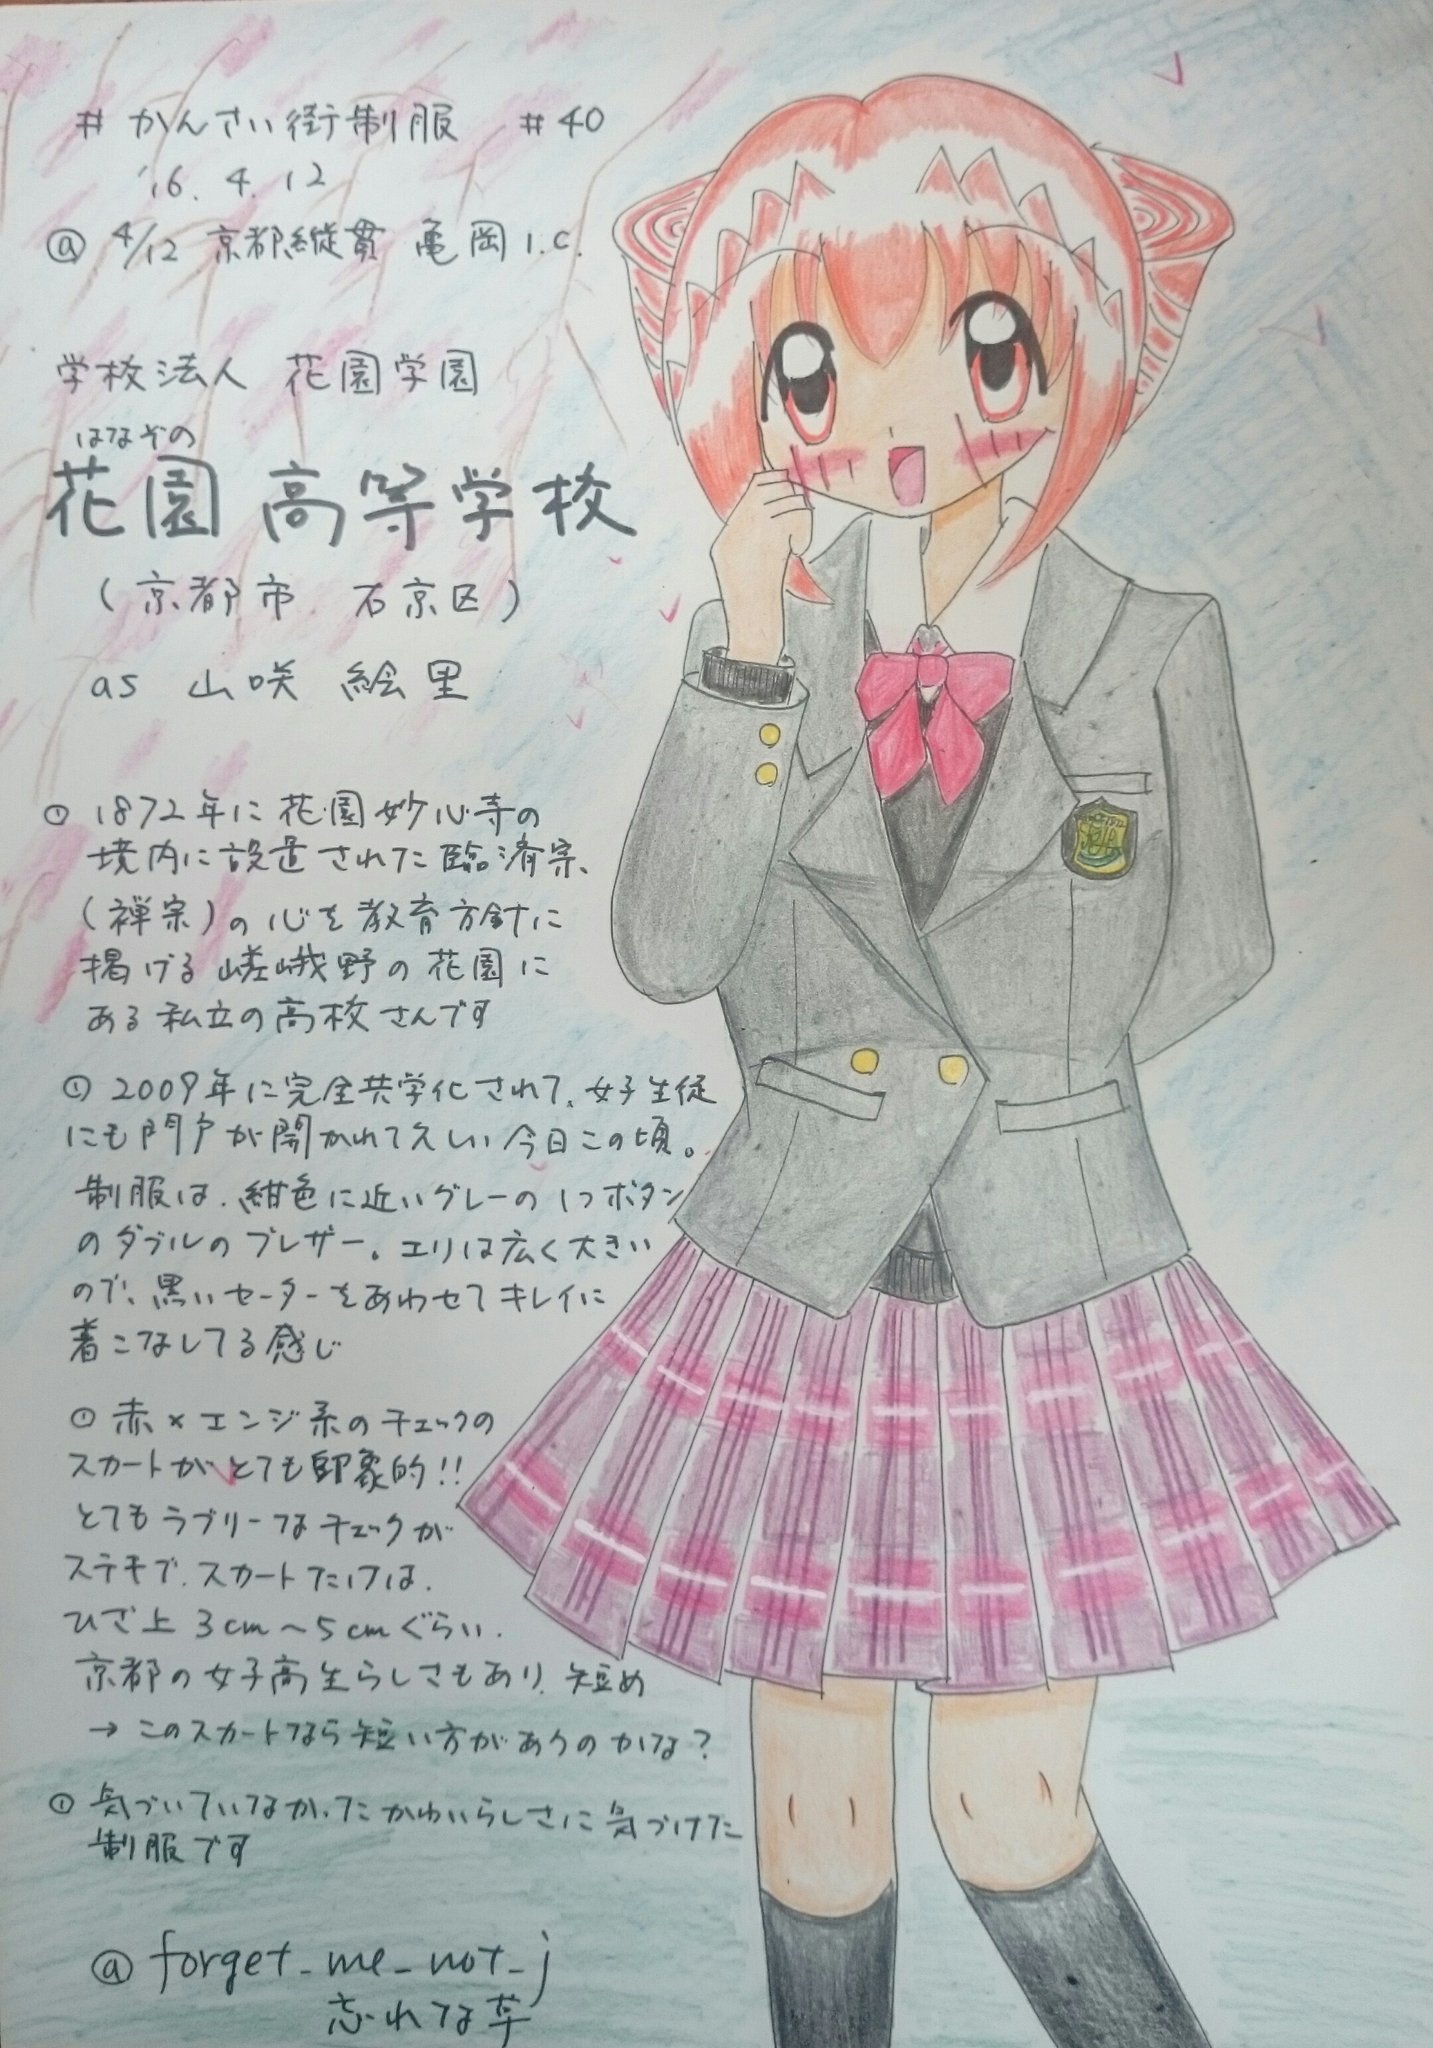 # かんさい街制服 #40
'16.4.12
@ 4/12 京都縦貫 亀岡I.C.
学校法人 花園学園
はなぞの
花園高等学校
(京都市 右京区)
as 山咲 絵里
① 1872年に花園妙心寺の
境内に設置された臨済宗、
(禅宗)の心を教育方針に
掲げる嵯峨野の花園に
ある私立の高校さんです
① 2009年に完全共学化されて、女子生徒
にも門戸が開かれて久しい今日この頃。
制服は、紺色に近いグレーの1つボタン
のダブルのブレザー。エリは広く大きい
ので、黒いセーターをあわせてキレイに
着こなしてる感じ
① 赤×エンジ系のチェックの
スカートがとても印象的!!
とてもラブリーなチェックが
ステキで、スカートたけは、
ひざ上 3cm〜5cmぐらい、
京都の女子高生らしさもあり、短め
→このスカートなら短い方がありのかな?
① 気づいていなかったかわいらしさに気づけた
制服です
@forget_me_not_j
忘れな草